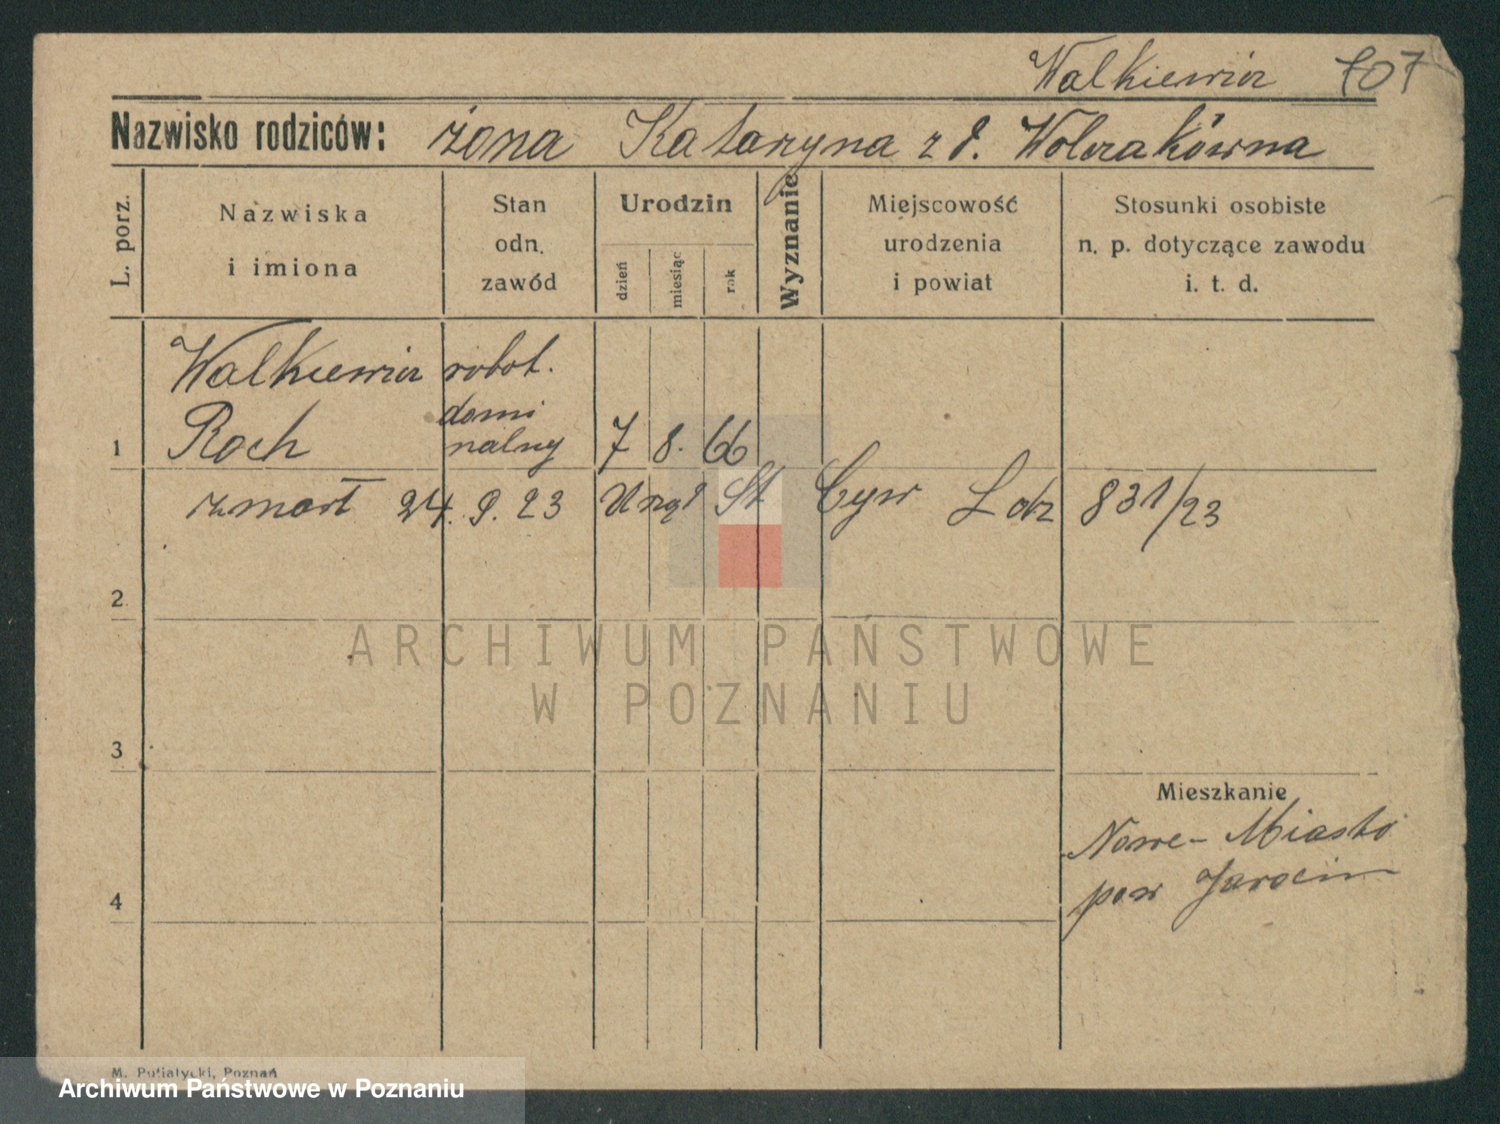 Walkiewicz 707
Nazwisko rodziców: żona Katarzyna z d. Wolczakówna
L. porz.
Nazwiska
i imiona
Stan
odn.
zawód
Urodzin
dzień
miesiąc
rok
Wyznanie
Miejscowość
urodzenia
i powiat
Stosunki osobiste
n. p. dotyczące zawodu
i. t. d.
Walkiewicz robot.
Roch domi
nalny
1 7 8. 66
zmarł 24. 9. 23 Urząd St Cyw Lodz 831/23
2
ARCHIWUM PAŃSTWOWE
W POZNANIU
3
Mieszkanie
Nowe-Miasto
pow Jarocin
4
M. Putiatycki, Poznań
Archiwum Państwowe w Poznaniu